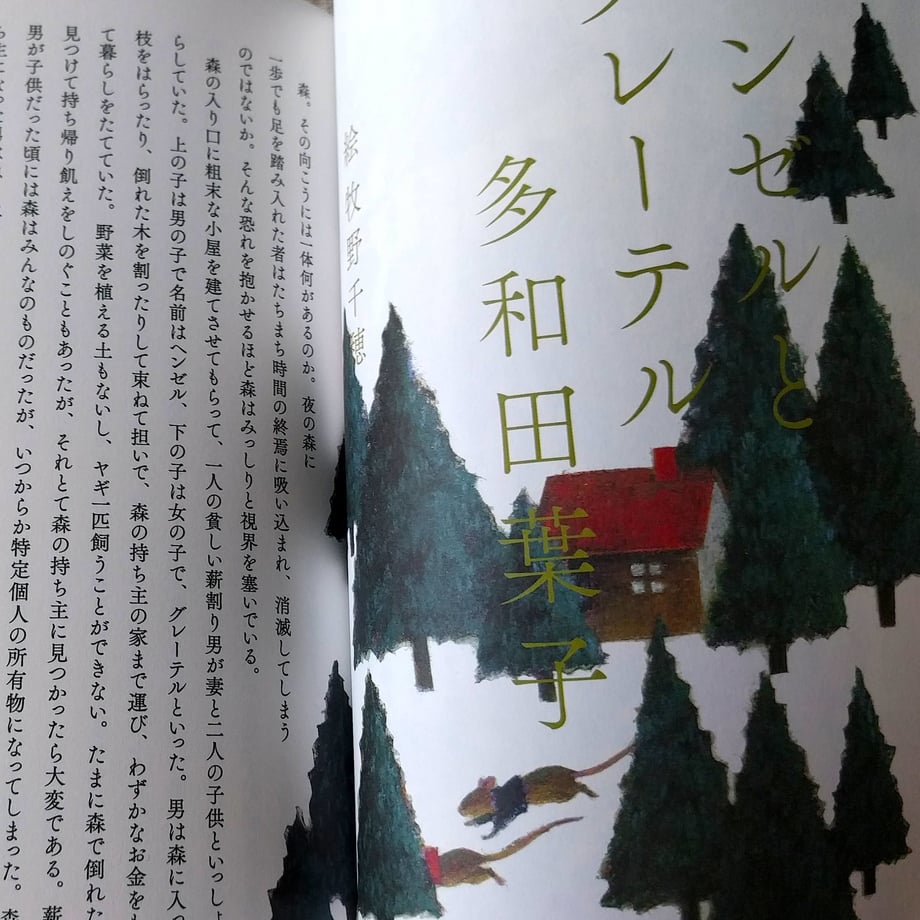 ンゼルと
レーテル
多和田葉子
絵 牧野千穂
森。その向こうには一体何があるのか。夜の森に
一歩でも足を踏み入れた者はたちまち時間の終焉に吸い込まれ、消滅してしまう
のではないか。そんな恐れを抱かせるほど森はみっしりと視界を塞いでいる。
森の入り口に粗末な小屋を建てさせてもらって、一人の貧しい薪割り男が妻と二人の子供といっしょ
らしていた。上の子は男の子で名前はヘンゼル、下の子は女の子で、グレーテルといった。男は森に入っ
枝をはらったり、倒れた木を割ったりして束ねて担いで、森の持ち主の家まで運び、わずかなお金をも
て暮らしをたてていた。野菜を植える土もないし、ヤギ一匹飼うことができない。たまに森で倒れた
見つけて持ち帰り飢えをしのぐこともあったが、それとて森の持ち主に見つかったら大変である。薪
男が子供だった頃には森はみんなのものだったが、いつからか特定個人の所有物になってしまった。